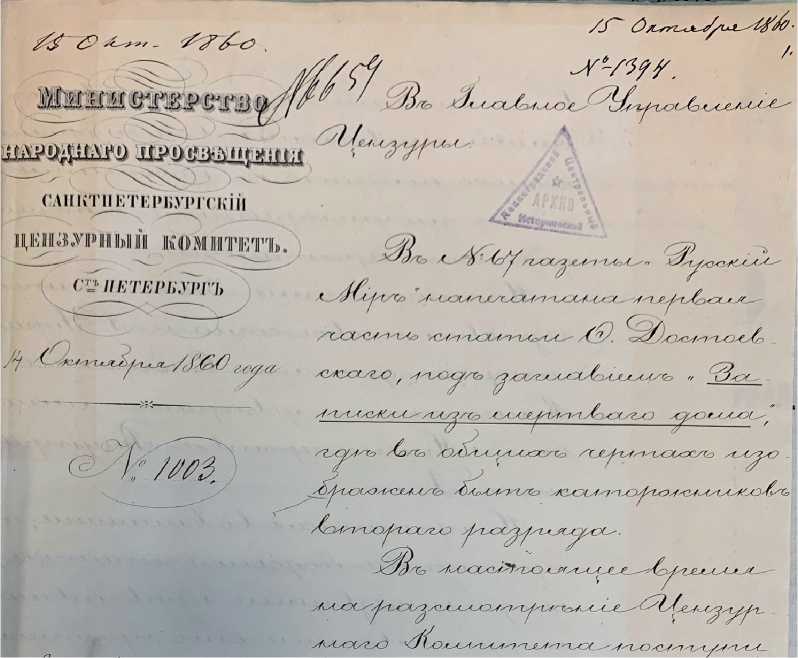 15 Окт. 1860.
15 Октября 1860.
№ 1394.
1.
Министерство
народнаго просвѣщенія
Санктпетербургскій
Цензурный Комитетъ.
Стъ Петербургъ
14 Октября 1860 года
№ 1003.
Въ Главное Управленіе
Цензуры.
Ленинградский Центральный Исторический
АРХИВ
Въ № 67 газеты „Русскій
Міръ" напечатана первая
часть статьи Ѳ. Достоев-
скаго, подъ заглавіемъ „За-
писки изъ мертваго дома",
гдѣ въ общихъ чертахъ изо-
браженъ бытъ каторжниковъ
втораго разряда.
Въ настоящее время
на разсмотрѣніе Цензур-
наго Комитета поступи